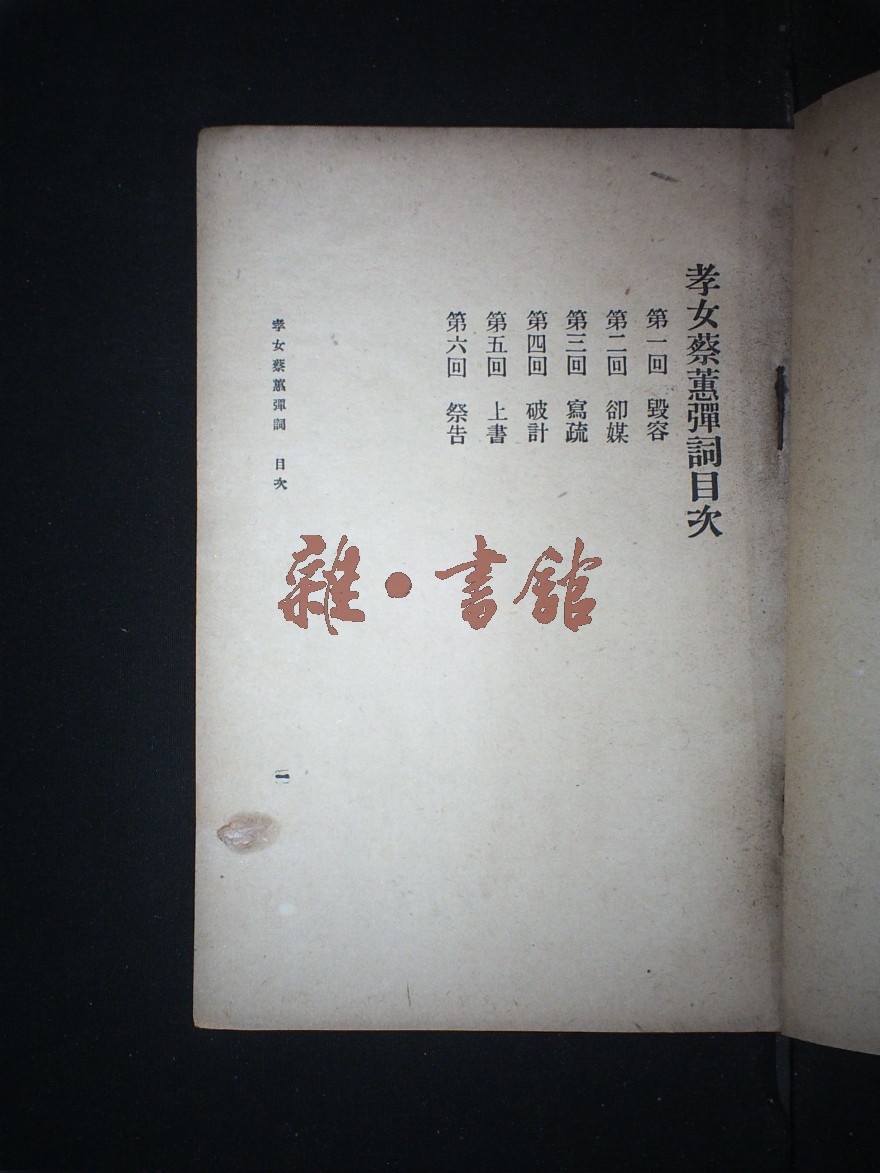 孝女蔡蕙彈詞目次
第一回 毀容
第二回 卻媒
第三回 寫疏
第四回 破計
第五回 上書
第六回 祭告
孝女蔡蕙彈詞 目次
一
雜·書館